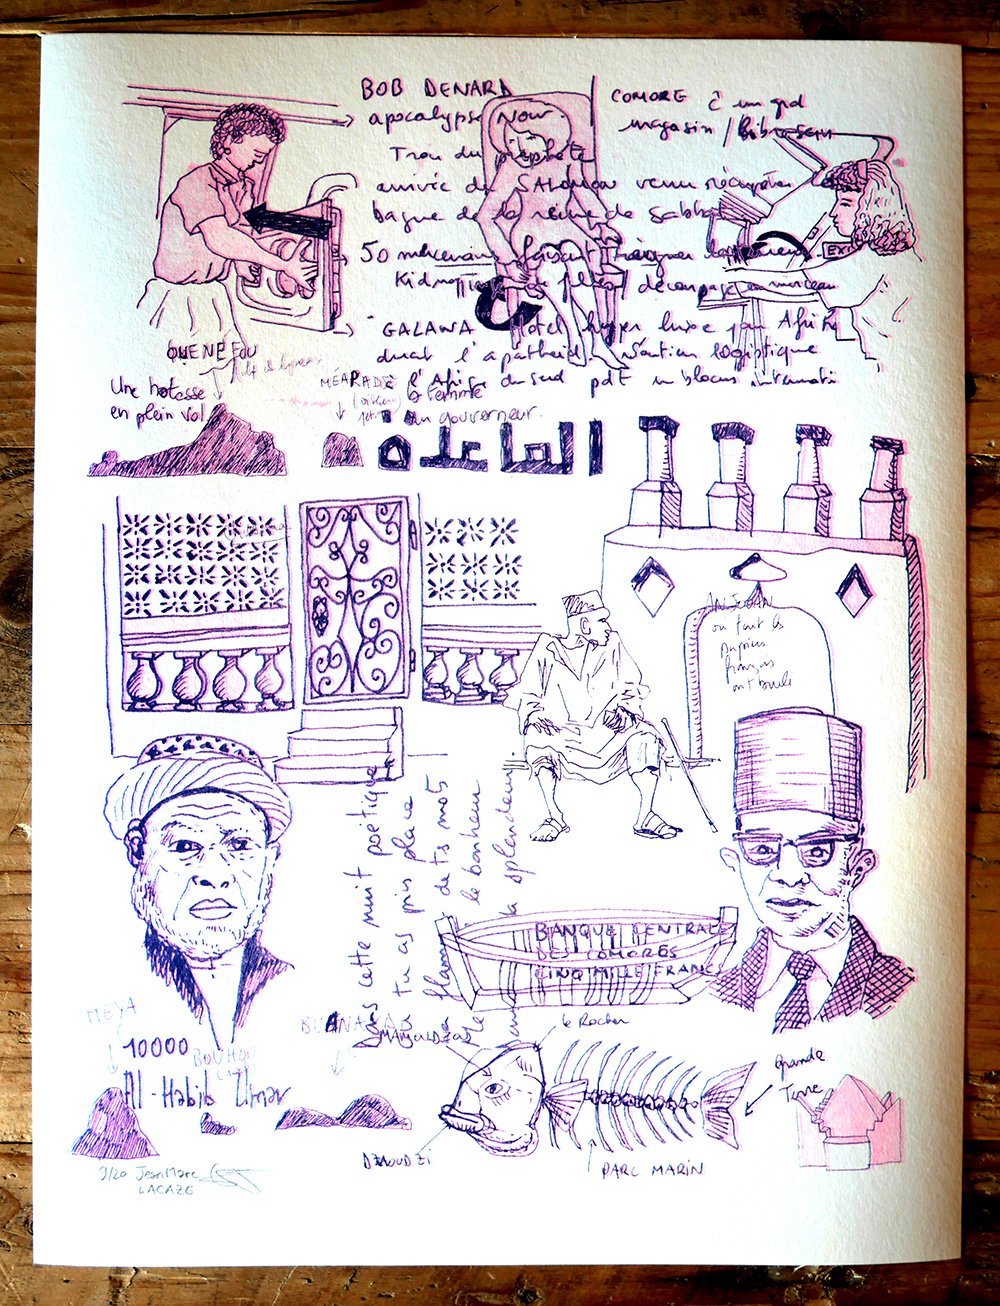 BOB DENARD
apocalypse Now
Trou du prophète
arrivée de SALOMON venu récupérer la
bague de la reine de Sabba
50 mercenaires faisant
Kidnapping de
découpage en morceau
COMORE un grd
magasin /
"GALAWA Hotel hyper luxe pour Afri
durant l'apartheid, soutien logistique
à l'Afrique du sud pdt un blocus internati
QUENEFOU
Une hotesse
en plein vol
MEARADE
la femme
du gouverneur.
EXIT
القاعدة
ANJOUAN
ou tout les
papiers
français
ont brulé
Dans cette nuit poétique
tu as pris place
flamme de tes mots
le bonheur
la splendeur
BANQUE CENTRALE
DES COMORES
CINQ MILLE FRANCS
MEYA
10000
BOUHOU
Al-Habib Umar
MAMOUDZOU
le Rocher
Grande
Terre
DZAOUDZI
PARC MARIN
9/20 Jean Marc
LACAZE